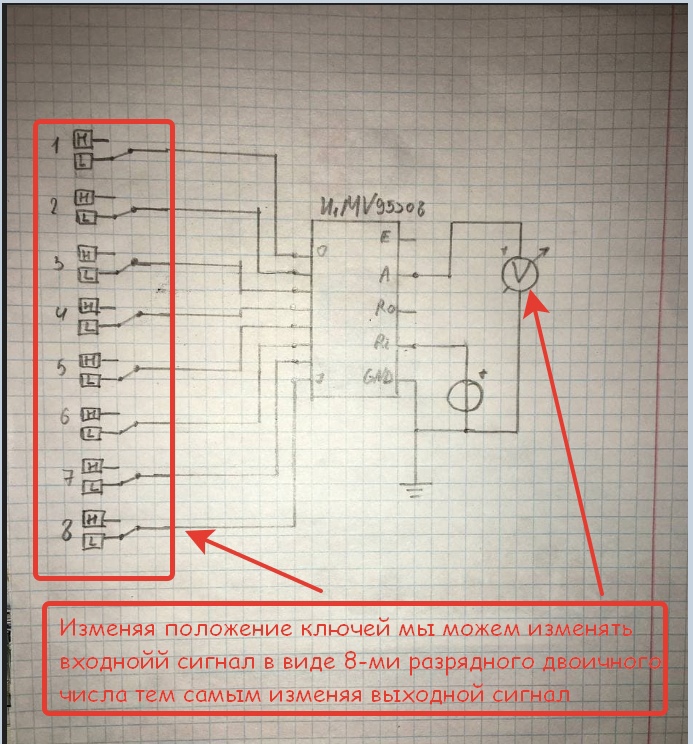 1 H
L
2 H
L
3 H
L
4 H
L
5 H
L
6 H
L
7 H
L
8 H
L
0
7
E
A
Ro
Ri
GND
V
+
Изменяя положение ключей мы можем изменять
входнойй сигнал в виде 8-ми разрядного двоичного
числа тем самым изменяя выходной сигнал